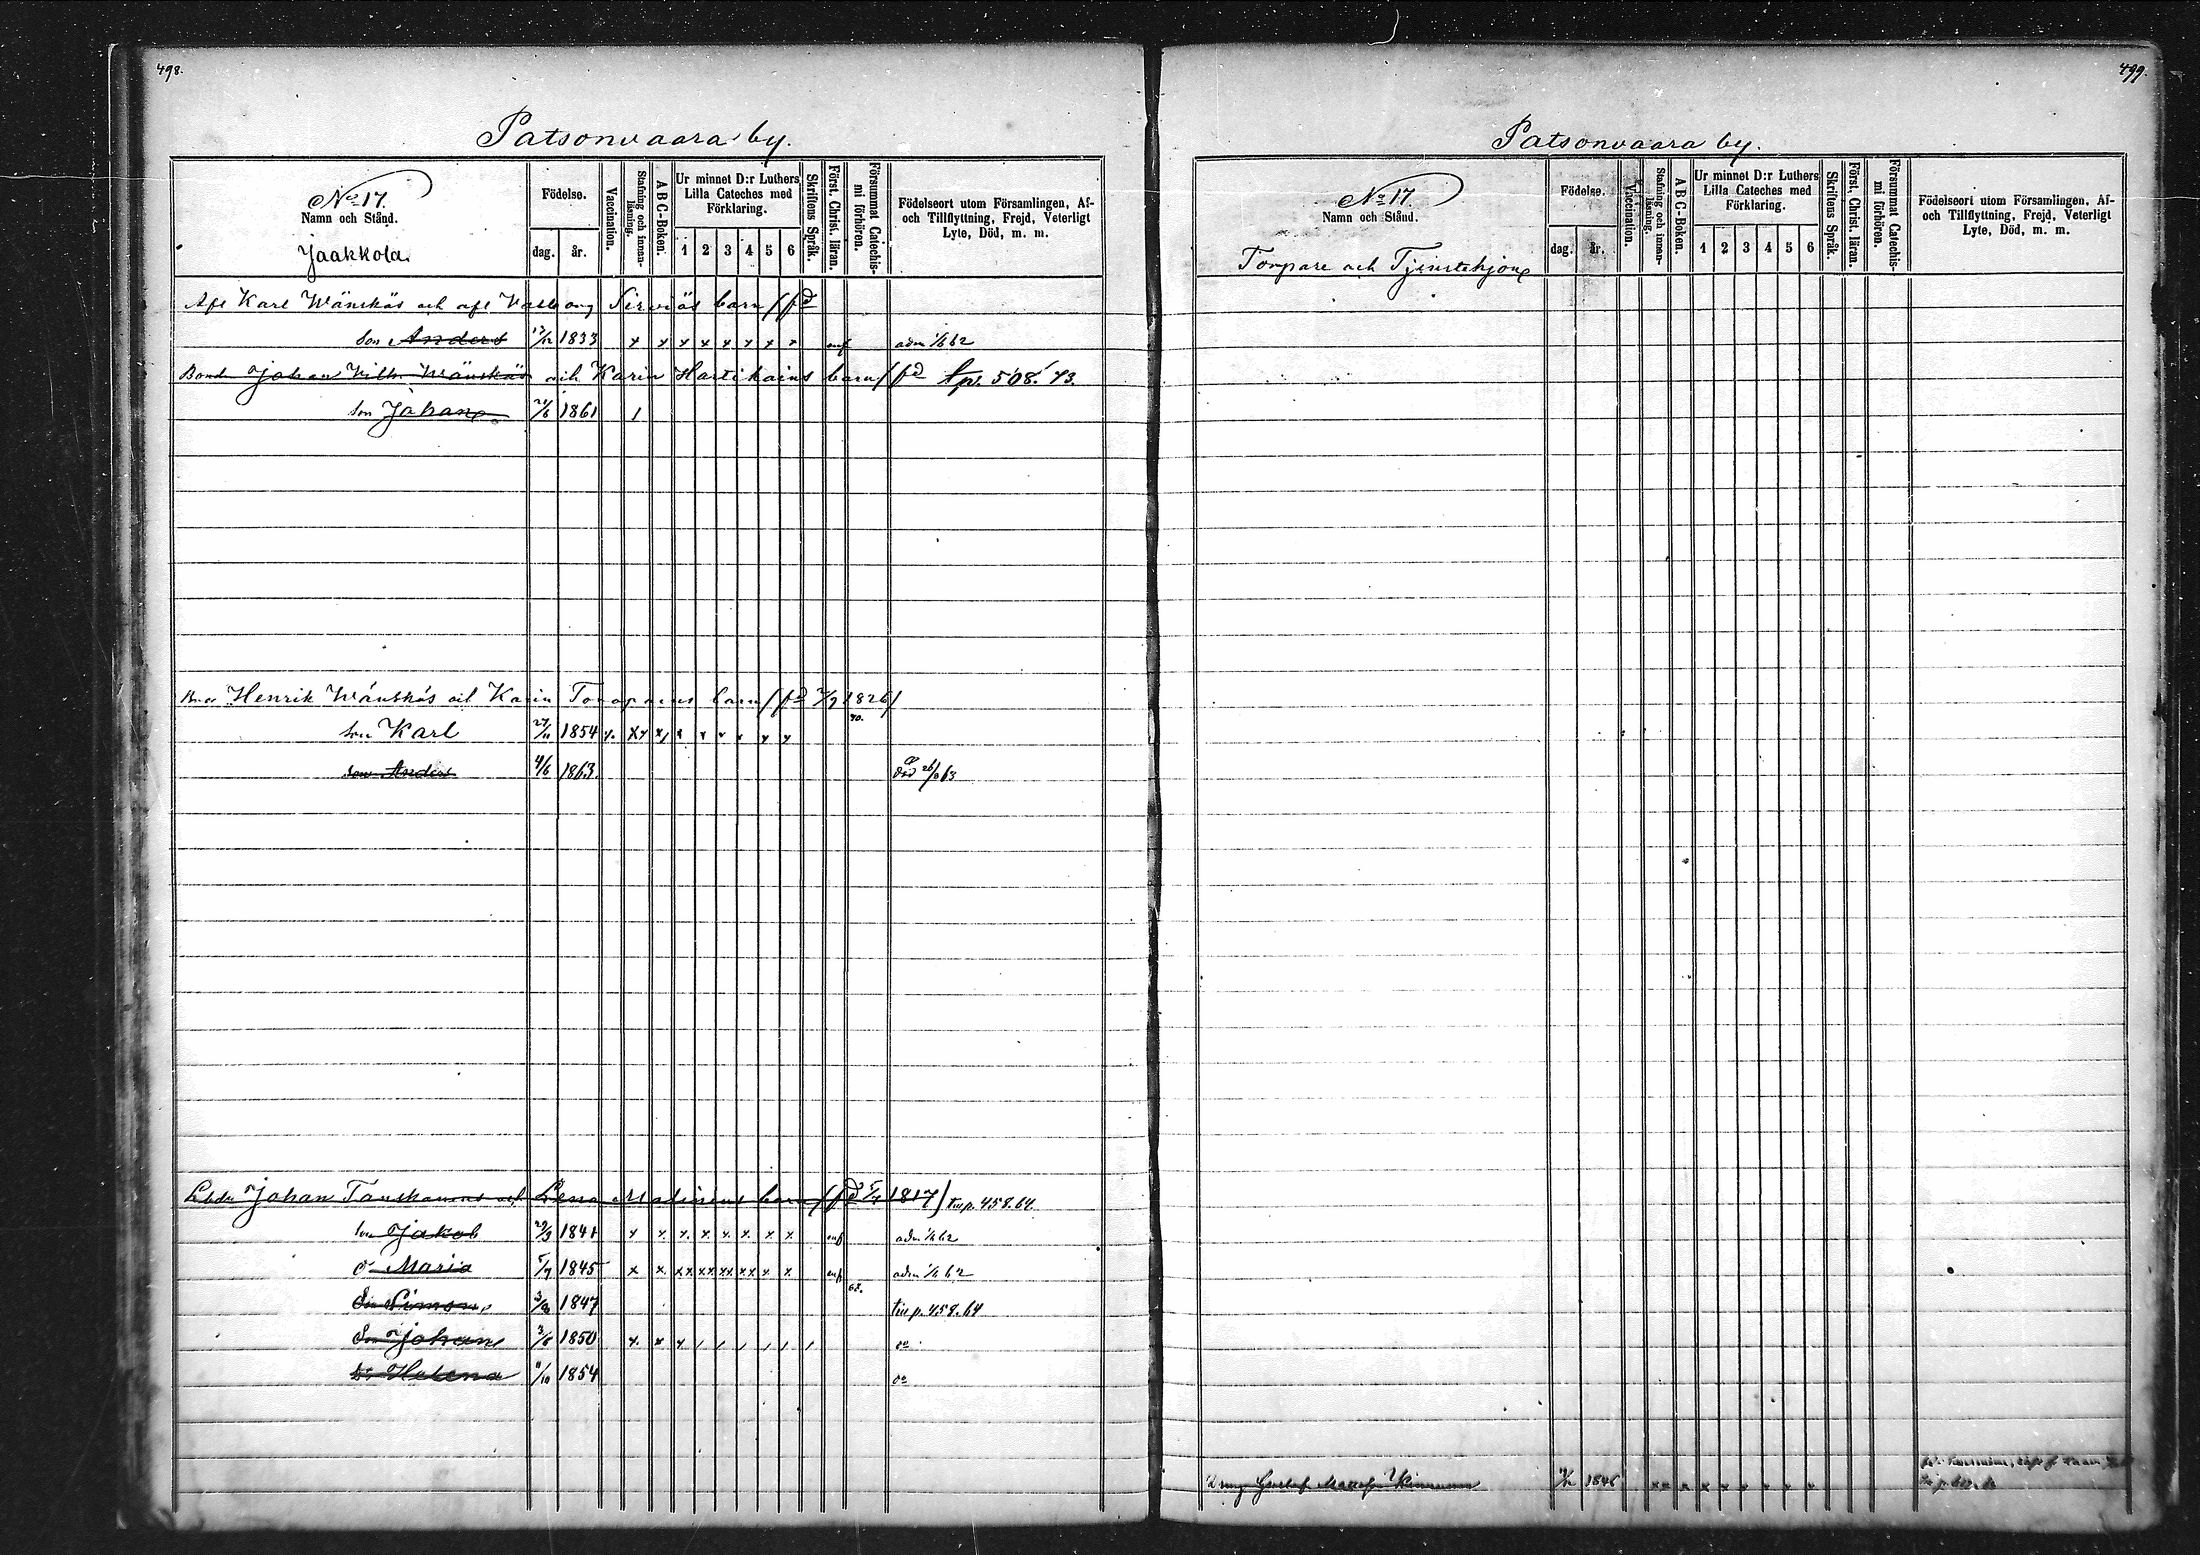 498.
Patsonvaara by.
No 17.
Namn och Stånd.
Jaakkola.
Födelse.
dag. år.
Vaccination.
Stafning och innanläsning.
A B C-Boken.
Ur minnet D:r Luthers Lilla Cateches med Förklaring.
1 2 3 4 5 6
Skriftens Språk.
Först. Christ. läran.
Försummat Catechismi förhören.
Födelseort utom Församlingen, Af- och Tillflyttning, Frejd, Veterligt Lyte, Död, m. m.
Afl Karl Wänskäs och afl Walborg barn / fd
son Anders 13/12 1833 x x x x x x x x adm 1/6 62
Bond Johan Wilh. Wänskäs och Karin Hartikains barn / fd tp. 508. 73.
son Johan 1861 1
Henrik Wänskäs och Karin Toropains barn / fd 2/9 1826 /
70.
son Karl 1854
son Anders 4/6 1863 död 26/8 63
Johan Tanskanens och Lena Matinens barn / fd 5/7 1817 / tr. p. 458. 64.
son Jakob 29/3 1841 x x x x x x x x adm 1/6 62
dr Maria 5/7 1845 x x xx xx xx xx x x adm 1/6 62
62.
Son Simon 1847 tr. p. 458. 64
Son Johan 3/6 1850 x x x do
Dr Helena 1854 do
499.
Patsonvaara by.
No 17.
Namn och Stånd.
Torpare och Tjenstehjon
Födelse.
dag. år.
Vaccination.
Stafning och innanläsning.
A B C-Boken.
Ur minnet D:r Luthers Lilla Cateches med Förklaring.
1 2 3 4 5 6
Skriftens Språk.
Först. Christ. läran.
Försummat Catechismi förhören.
Födelseort utom Församlingen, Af- och Tillflyttning, Frejd, Veterligt Lyte, Död, m. m.
Dreng Gustaf Matts. Kinnunen 1846 xx x x x x x x